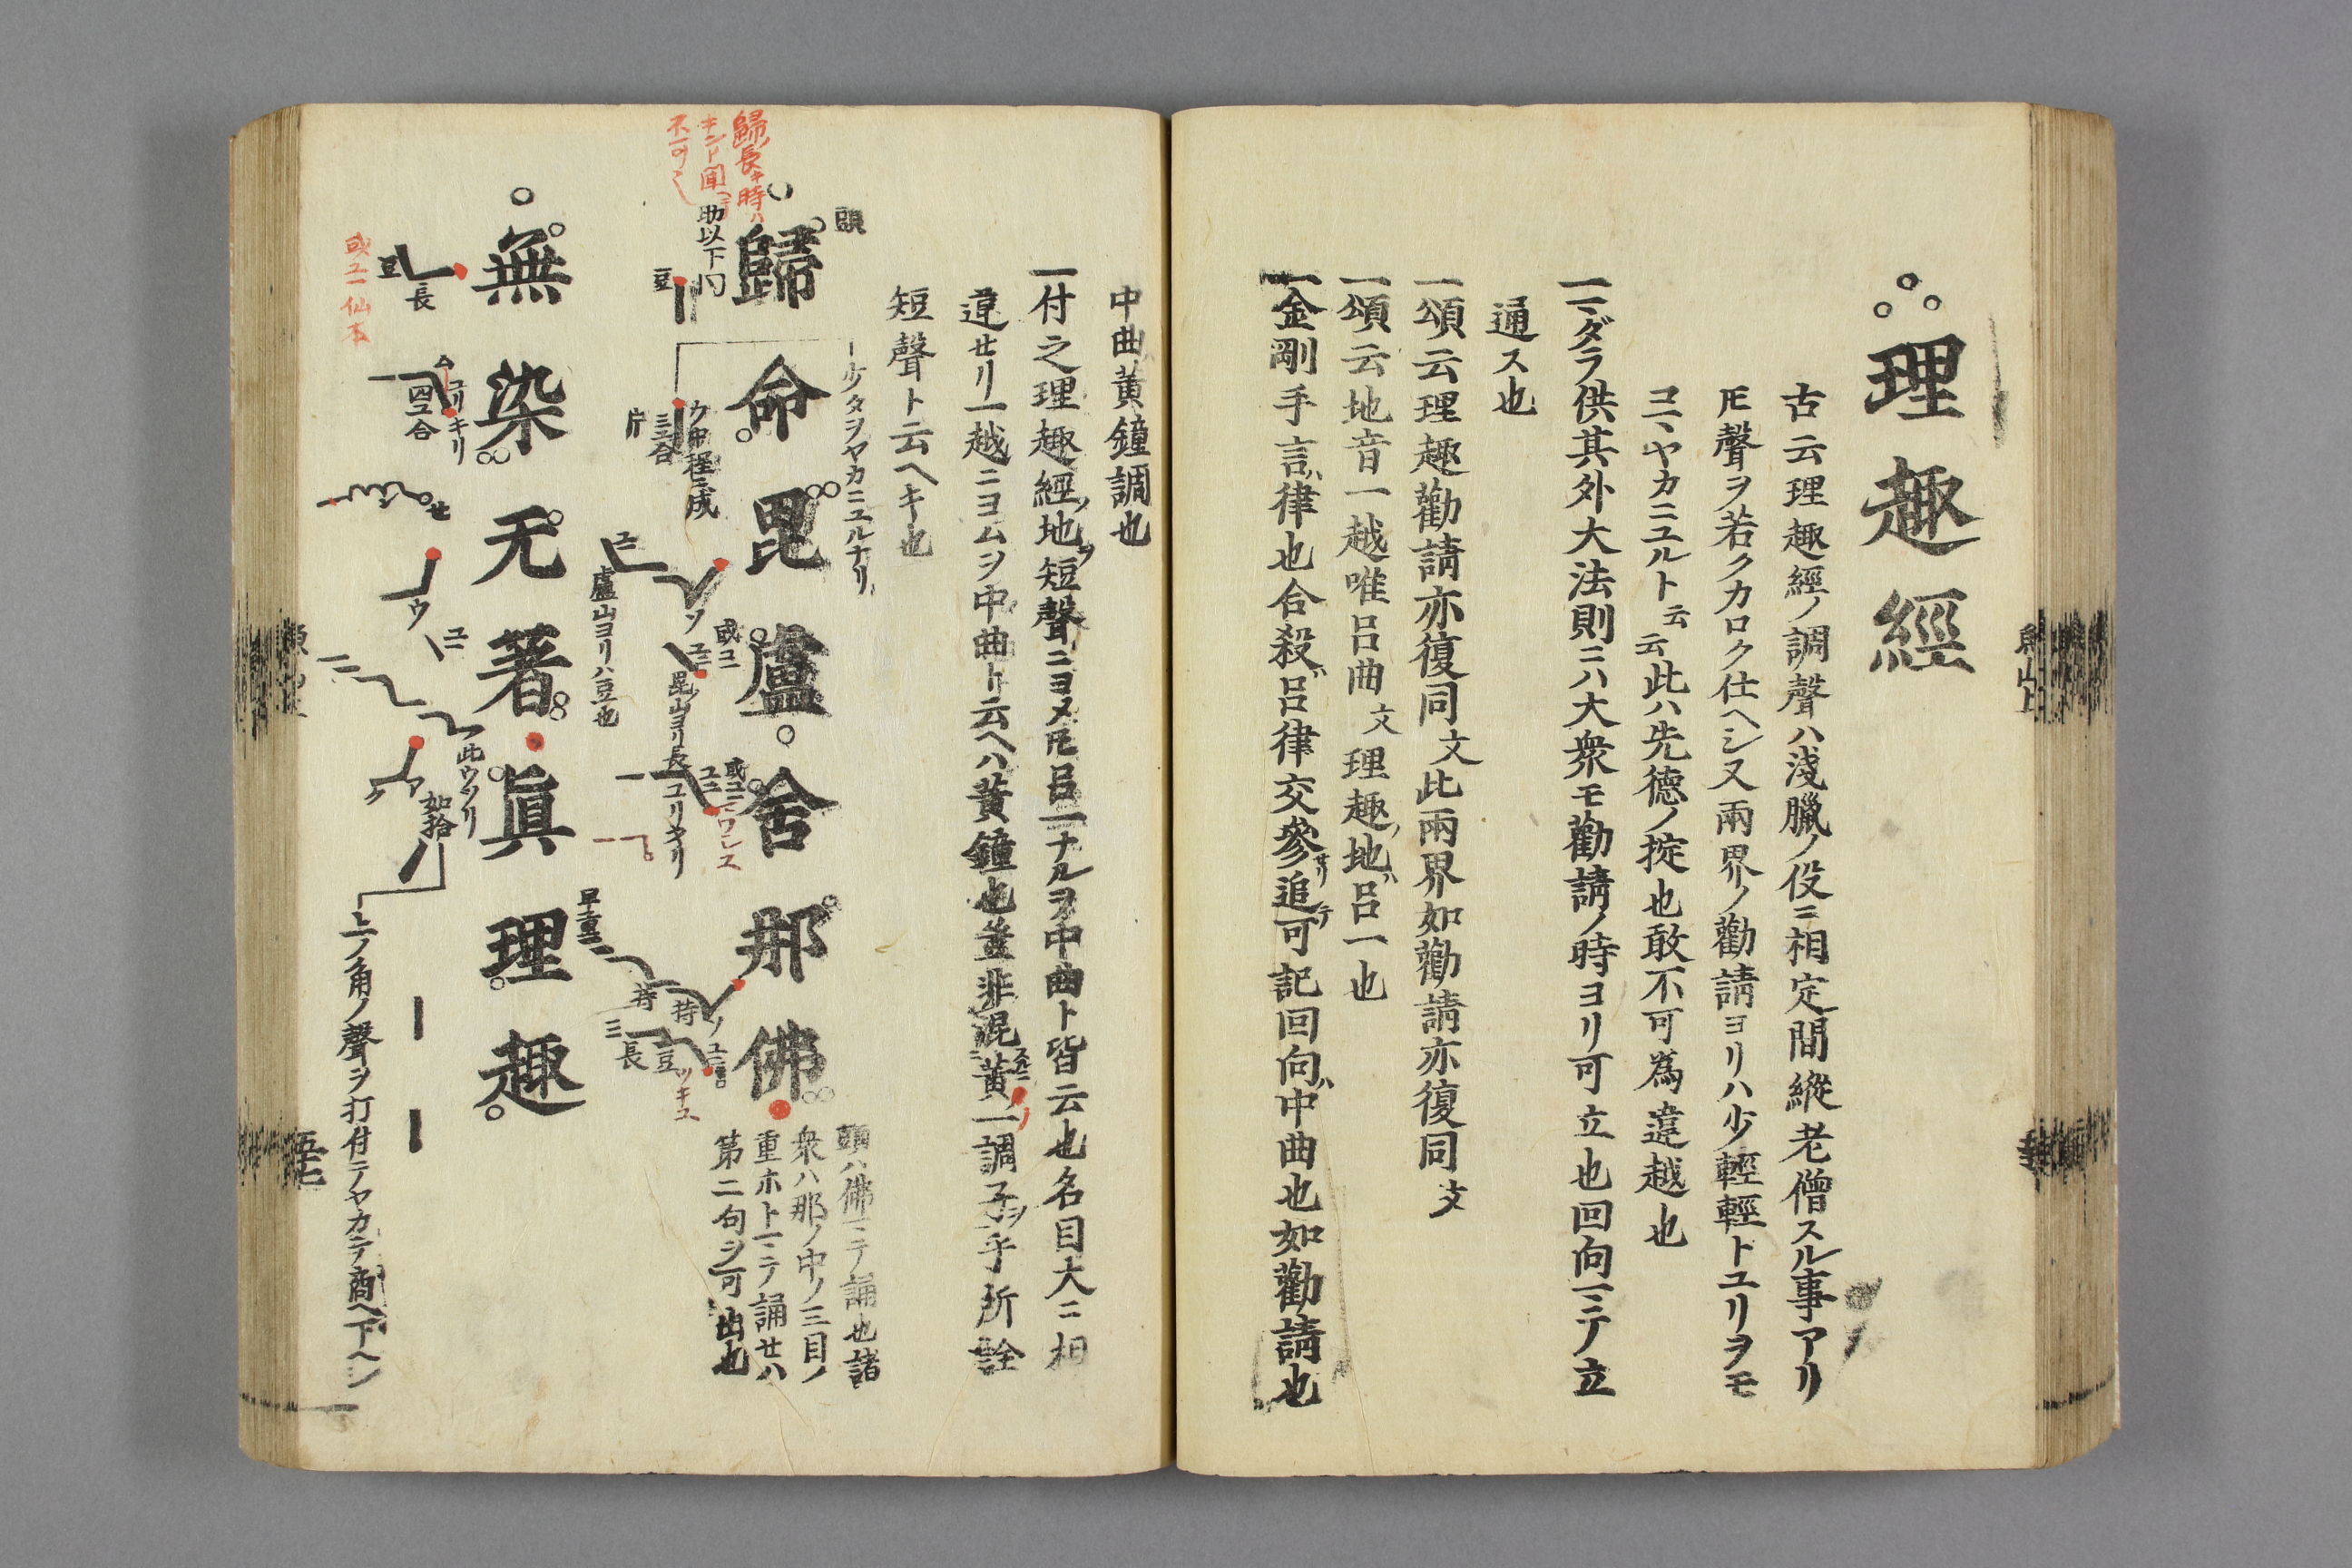 理趣經
古云理趣經ノ調聲ハ淺臈ノ役ニ相定間縱老僧スル事アリ
𪜈聲ヲ若クカロク仕ヘシ又兩界ノ勸請ヨリハ少輕輕トユリヲモ
コマヤカニユルト云云此ハ先德ノ掟也敢不可為違越也
一マダラ供其外大法則ニハ大衆モ勸請ノ時ヨリ可立也回向ニテ立
通ス也
一頌云理趣勸請亦復同文此兩界如勸請亦復同文
一頌云地音一越唯呂曲文理趣ノ地ハ呂一也
一金剛手言ハ律也合殺ハ呂律交參セリ追テ可記回向ハ中曲也如勸請也
中曲ハ黄鐘調也
一付之理趣經ノ地ヲ短聲ニヨメ𪜈呂一ナルヲ中曲ト皆云也名目大ニ相
違せリ一越ニヨムヲ中曲ト云ヘハ黄鐘也豈非混黄一調子ヲ乎所詮
短聲ト云ヘキ也
頭
歸命毘盧舍那佛
頭ハ佛ニテ誦也諸
衆ハ那ノ中ノ三目ノ
重ホトニテ誦せハ
第二句ヲ可出也
少タヲヤカニユルナリ
歸長キ時ハ
不可
助以下同
三合
或ユ
毘山ヨリ長
盧山ヨリハ豆也
ユリキリ
早重
持
持
長
豆
無染无著眞理趣
長
豆
或ユ一仙本
四ユ合
ユリキリ
ウ
此ウツリ
如拾
上ノ角ノ聲ヲ打付テヤカテ商ヘ下ヘシ
魚山上